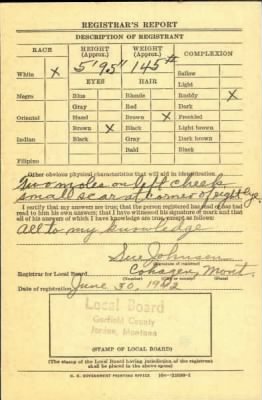 REGISTRAR'S REPORT
DESCRIPTION OF REGISTRANT
RACE HEIGHT (Approx.) WEIGHT (Approx.) COMPLEXION
White X 5'95" 145# Sallow
EYES HAIR Light
Negro Blue Blonde Ruddy X
Gray Red Dark
Oriental Hazel Brown X Freckled
Brown X Black Light brown
Indian Black Gray Dark brown
Bald Black
Filipino
Other obvious physical characteristics that will aid in identification
Two moles on left cheek
small scar at corner of right eye.
I certify that my answers are true; that the person registered has read or has had
read to him his own answers; that I have witnessed his signature or mark and that
all of his answers of which I have knowledge are true, except as follows:
All to my knowledge
Sue Johnson
(Signature of registrar)
Registrar for Local Board Cohagen, Mont.
(Number) (City or county) (State)
Date of registration June 30, 1942
Local Board
Garfield County
Jordan, Montana
(STAMP OF LOCAL BOARD)
(The stamp of the Local Board having jurisdiction of the registrant
shall be placed in the above space)
U. S. GOVERNMENT PRINTING OFFICE